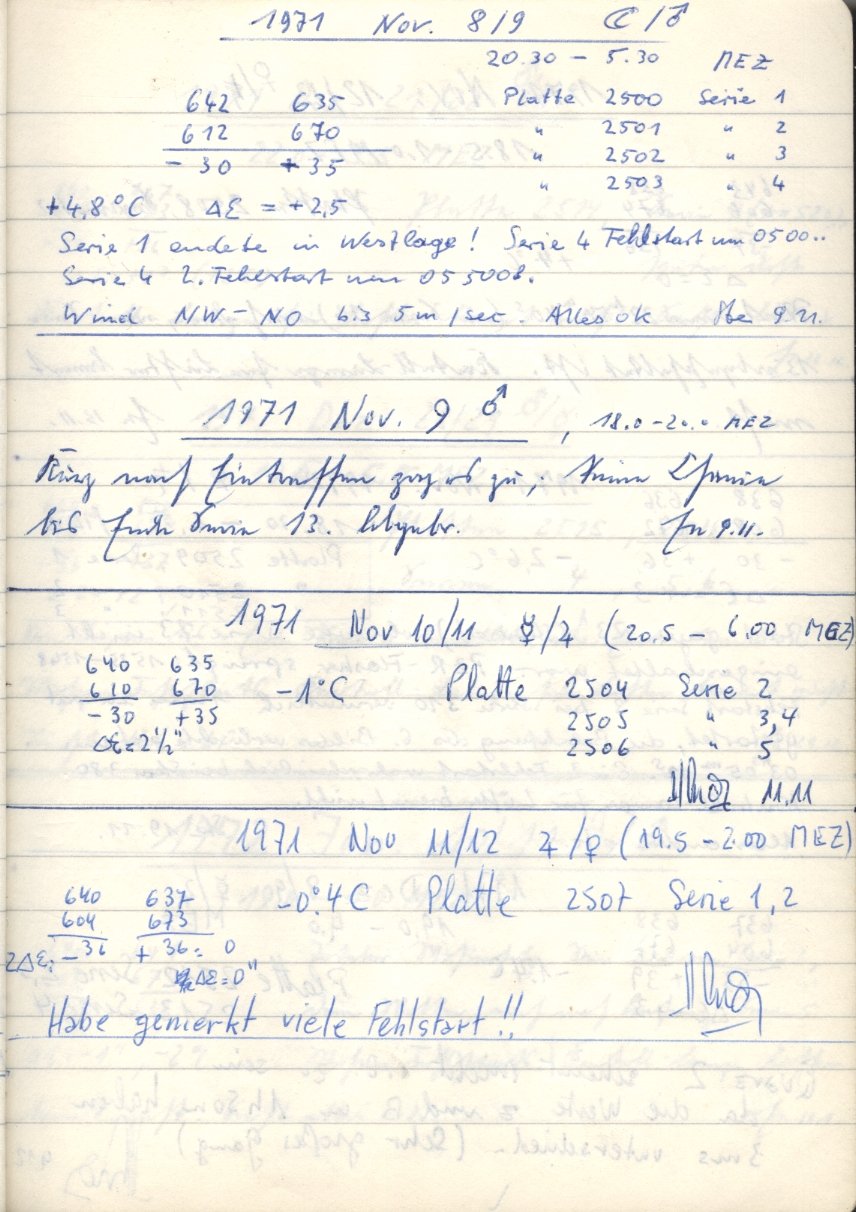 1971 Nov. 8/9 ☾/♂
20.30 – 5.30 MEZ
642 635 Platte 2500 Serie 1
612 670 " 2501 " 2
– 30 + 35 " 2502 " 3
" 2503 " 4
+4,8°C Δε = +2,5
Serie 1 endete in Westlage! Serie 4 Fehlstart um 0500..
Serie 4 2. Fehlstart um
Wind NW–NO 5m/sec. Alles ok 9.11.
1971 Nov. 9 ♂, 18.0–20.0 MEZ
Kurz nach Eintreffen zog es zu, keine
bis Ende Serie 13. 9.11.
1971 Nov 10/11 ☿/♃ (20.5 – 6.00 MEZ)
640 635
610 670 –1°C Platte 2504 Serie 2
–30 +35 2505 " 3,4
Δε=2½" 2506 " 5
11.11
1971 Nov 11/12 ♃/♀ (19.5 – 2.00 MEZ)
640 637 –0°.4 C Platte 2507 Serie 1,2
604 673
2Δε: –36 + 36 = 0
Δε=0"
Habe gemerkt viele Fehlstart!!